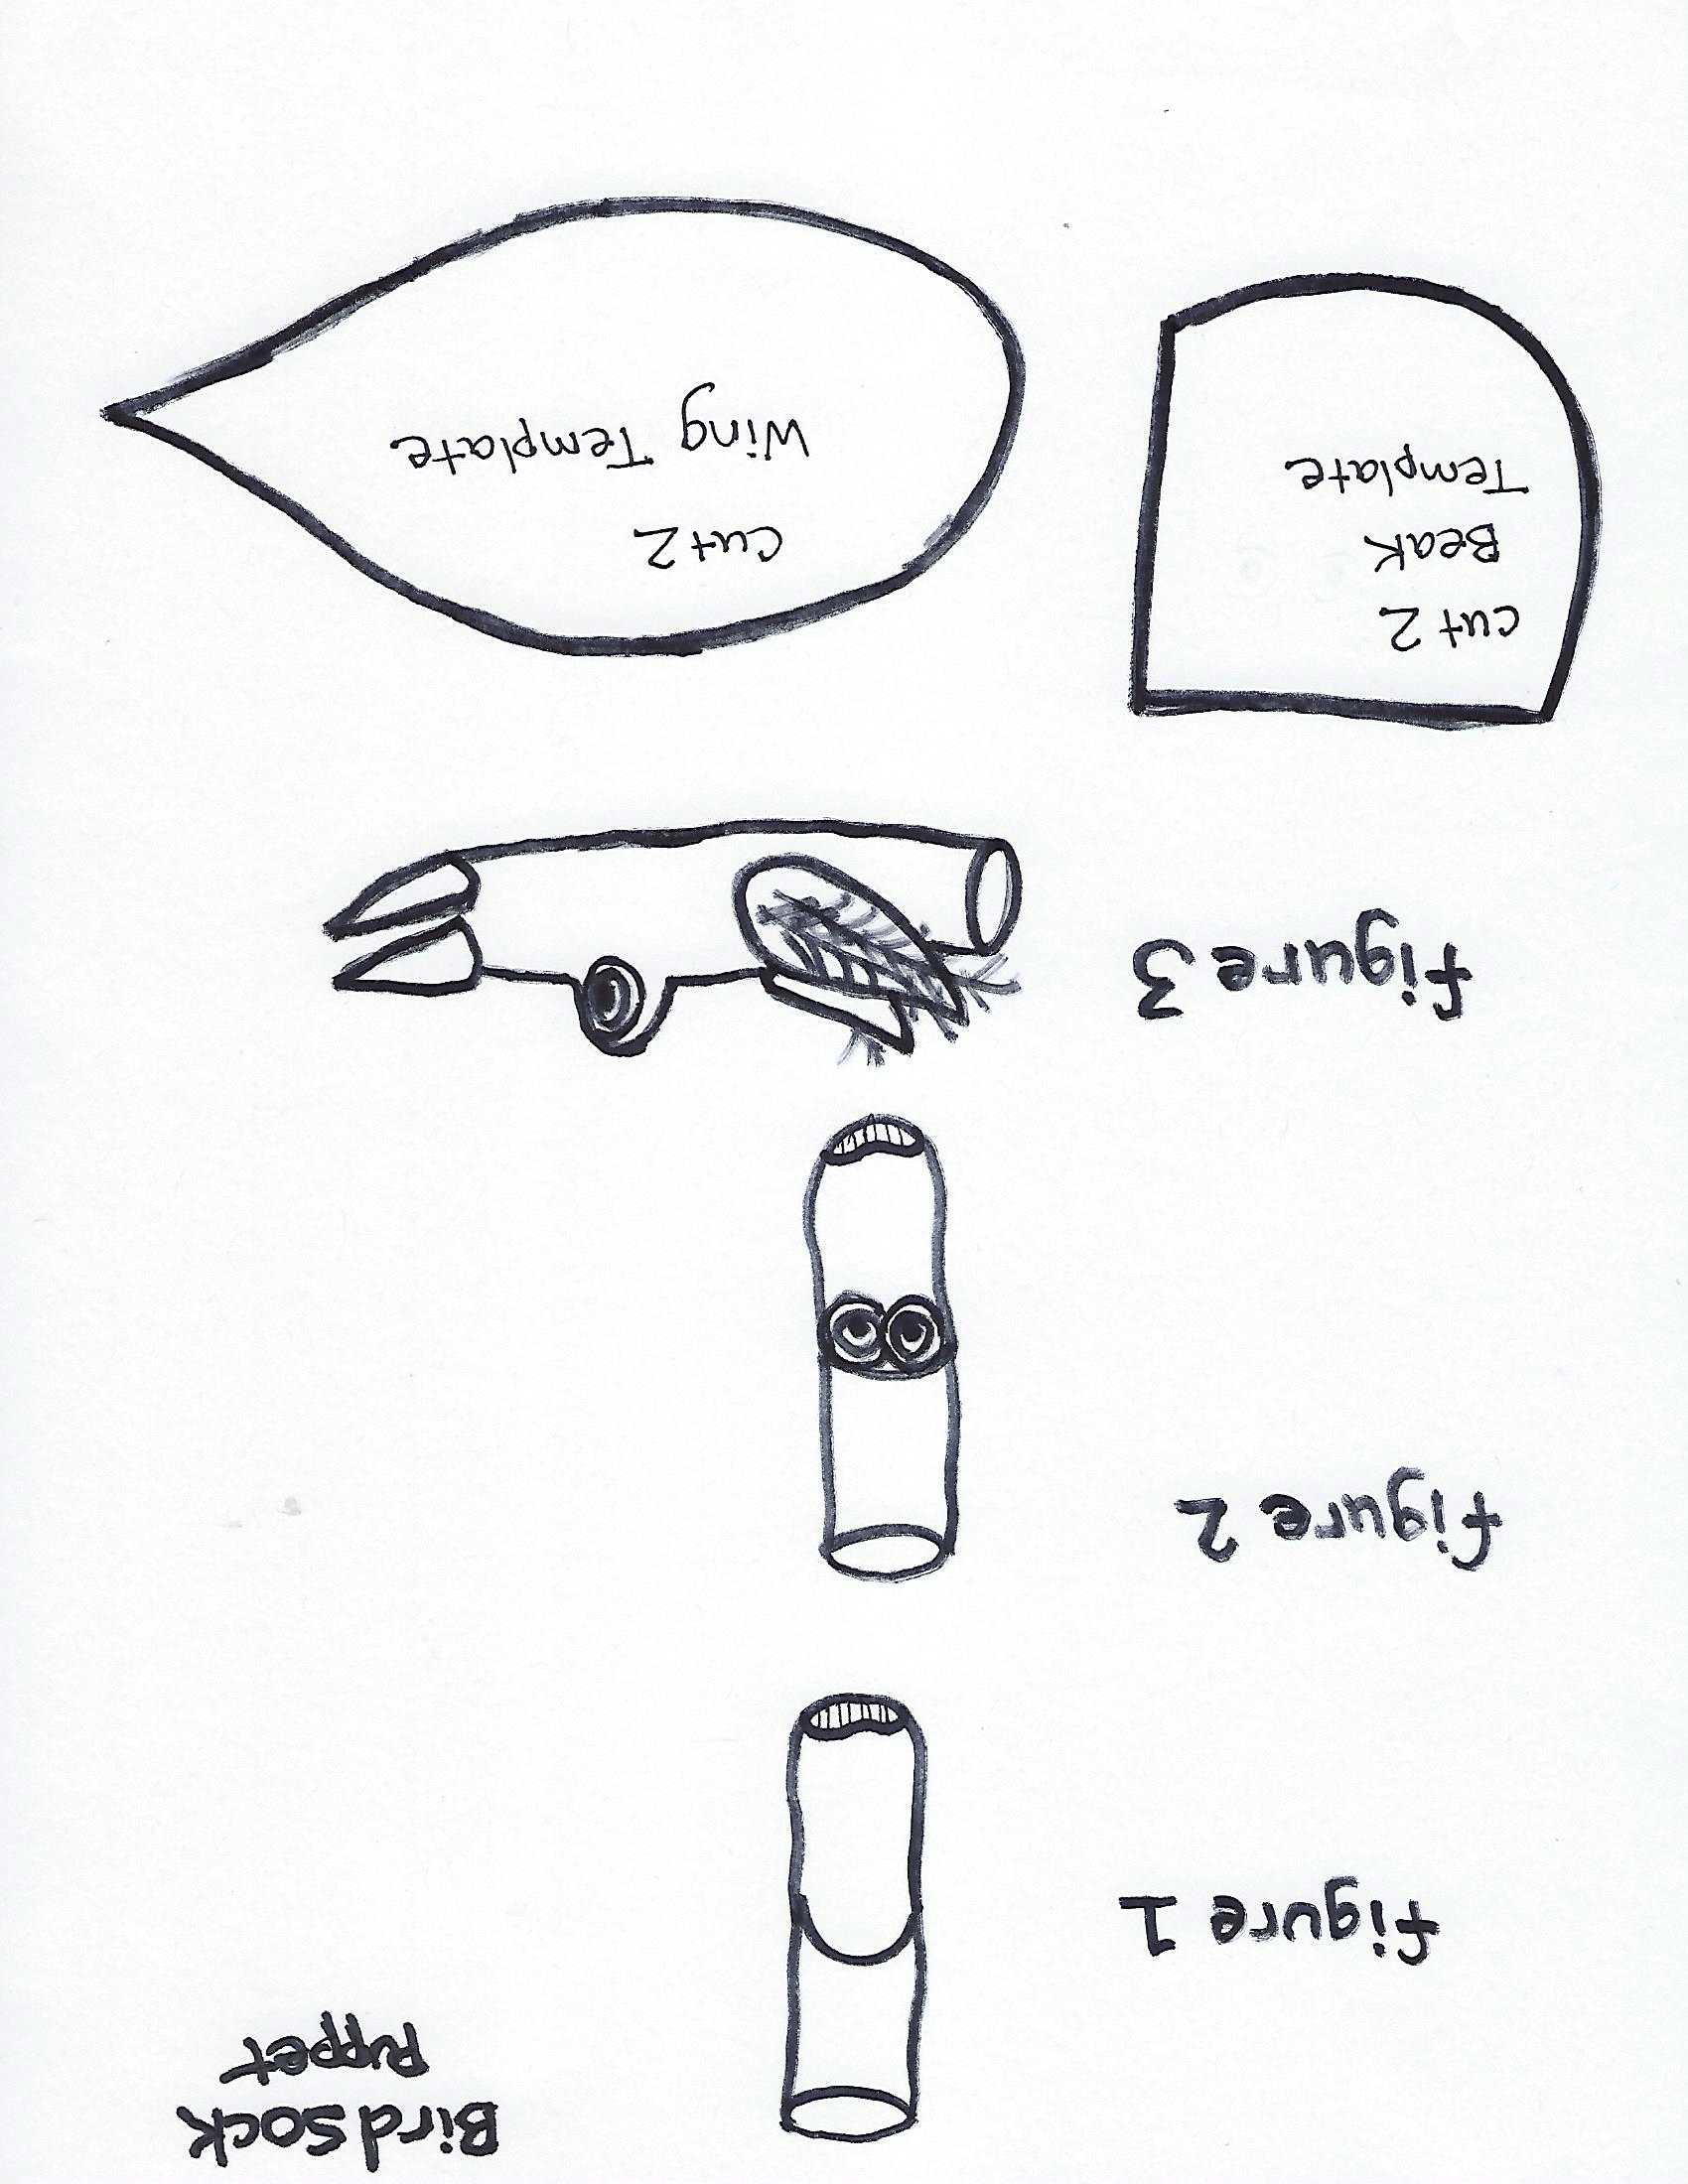 Bird Sock
Puppet
figure 1
figure 2
figure 3
cut 2
Beak
Template
cut 2
Wing Template